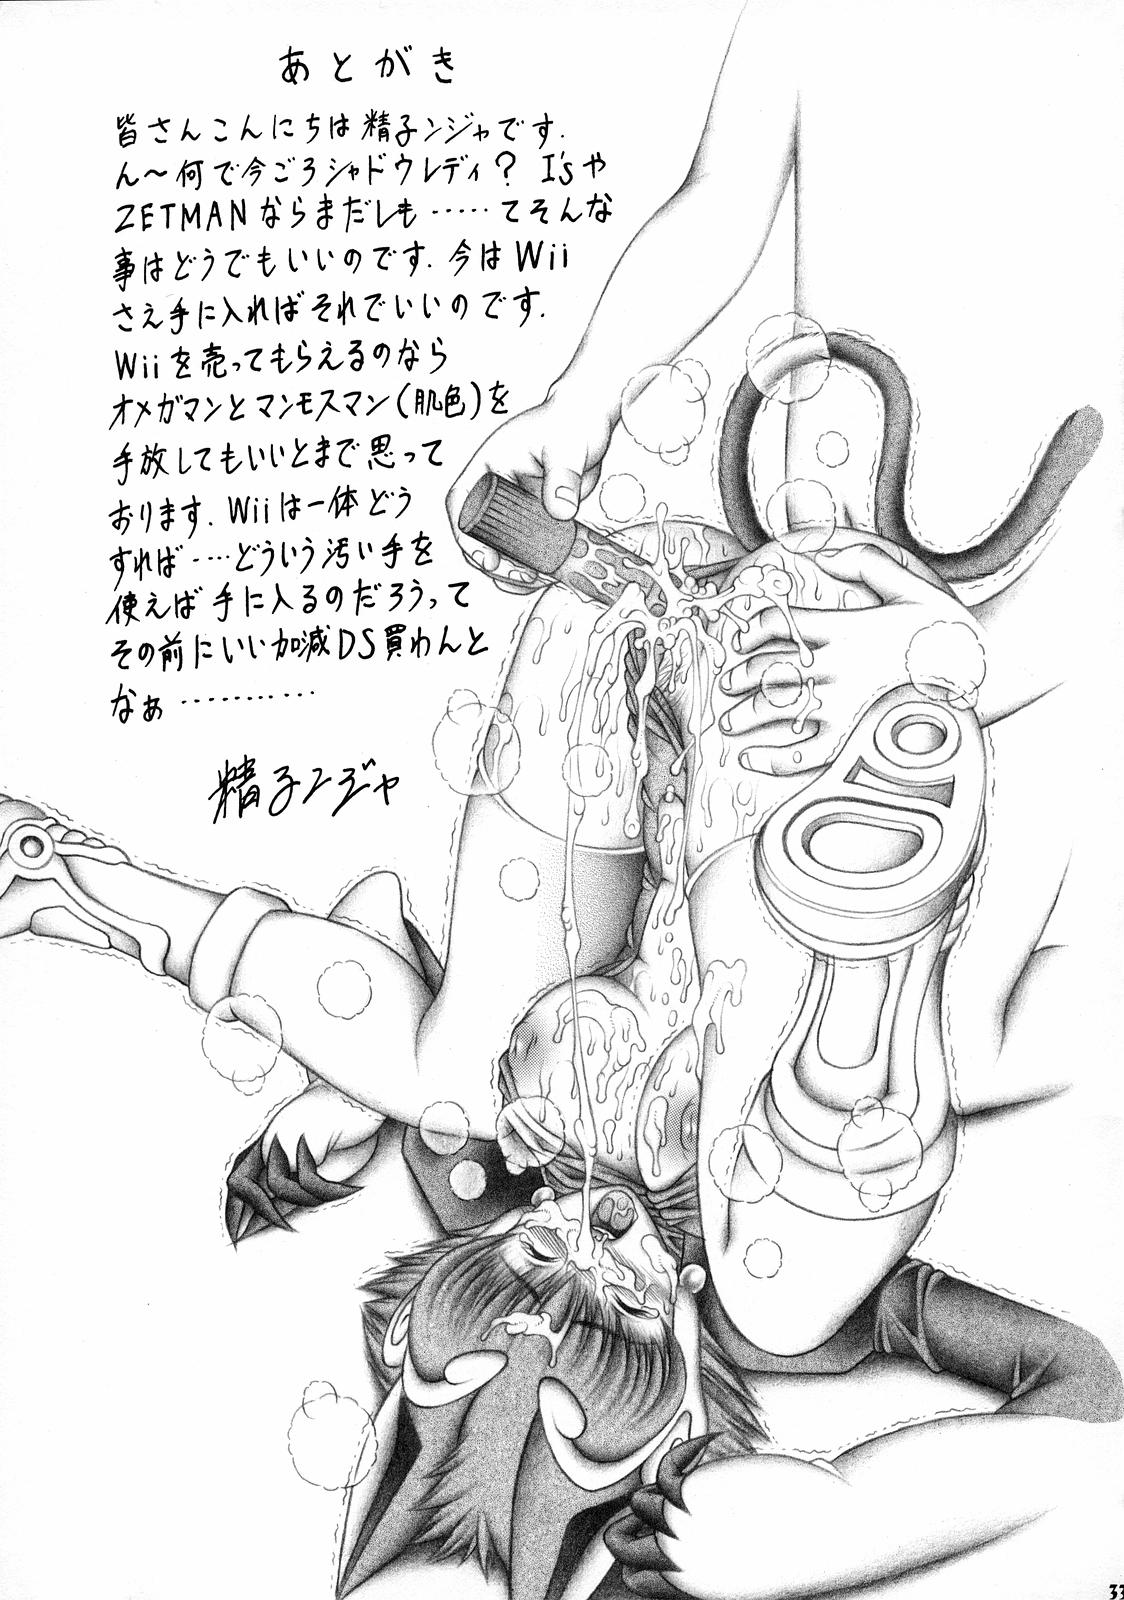 あとがき
皆さんこんにちは精子ンジャです.
ん〜何で今ごろシャドウレディ？ I'sや
ZETMANならまだしも……てそんな
事はどうでもいいのです.今はWii
さえ手に入ればそれでいいのです.
Wiiを売ってもらえるのなら
オメガマンとマンモスマン(肌色)を
手放してもいいとまで思って
おります.Wiiは一体どう
すれば……どういう汚い手を
使えば手に入るのだろうって
その前にいい加減DS買わんと
なぁ…………
精子ンジャ
33